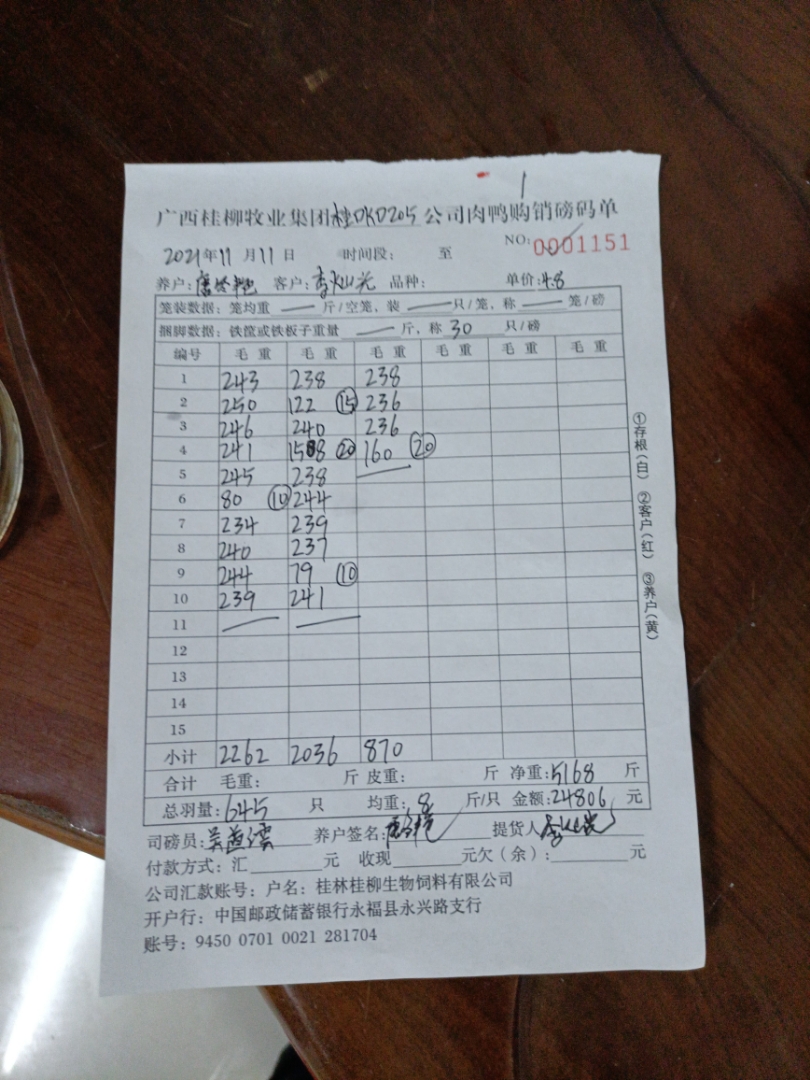 广西桂柳牧业集团桂DKD205公司肉鸭购销磅码单
2021年11月11日 时间段: 至 NO:0001151
养户:唐 客户:李灿光 品种: 单价:4.8
笼装数据:笼均重 — 斤/空笼,装 — 只/笼,称 — 笼/磅
捆脚数据:铁筐或铁板子重量 — 斤,称30 只/磅
编号 毛重 毛重 毛重 毛重 毛重 毛重
1 243 238 238
2 250 122 ⑮ 236
3 246 240 236
4 241 158 ⑳ 160 ⑳
5 245 238
6 80 ⑩ 244
7 234 239
8 240 237
9 244 79 ⑩
10 239 241
11
12
13
14
15
小计 2262 2036 870
合计 毛重: 斤 皮重: 斤 净重:5168 斤
总羽量:645 只 均重:8 斤/只 金额:24806 元
司磅员:吴 养户签名: 提货人
付款方式:汇 元 收现 元欠(余): 元
公司汇款账号:户名:桂林桂柳生物饲料有限公司
开户行:中国邮政储蓄银行永福县永兴路支行
账号:9450 0701 0021 281704
①存根(白) ②客户(红) ③养户(黄)